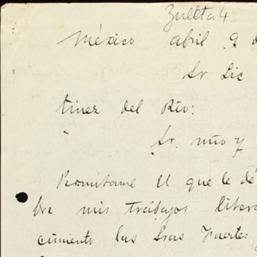 Zuleta 4
México abril 9 d
Sr Lic
tinez del Rio:
Sr. mio y
Permitame U que le dé
bre mis trabajos litera
cimiento las Sras Fuertes